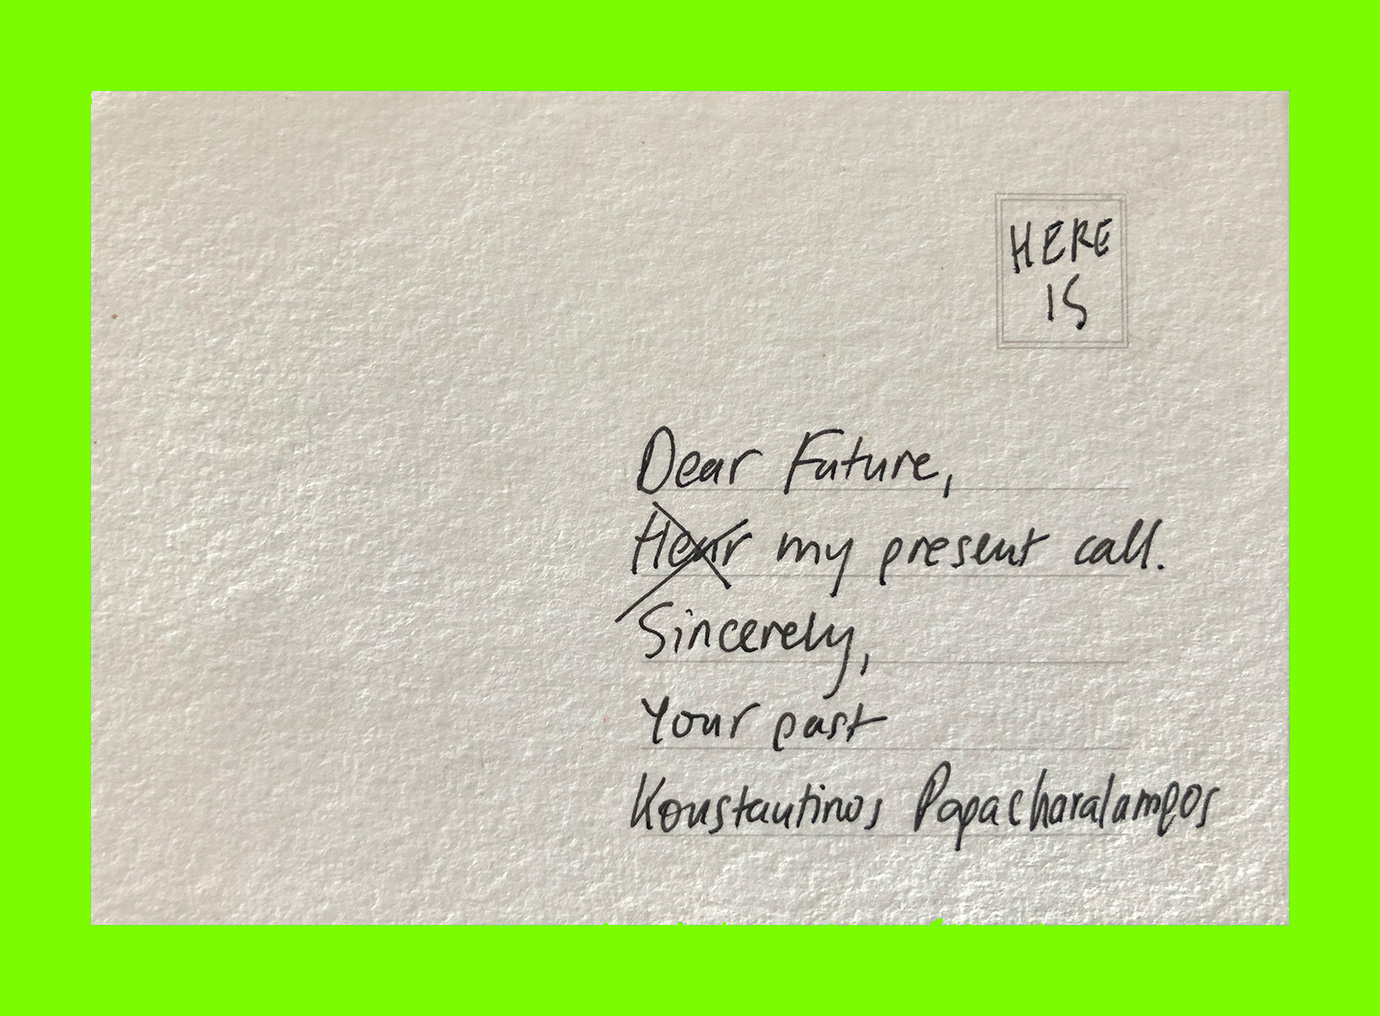 HERE
IS
Dear Future,
Hear my present call.
Sincerely,
Your past
Konstantinos Papacharalampos